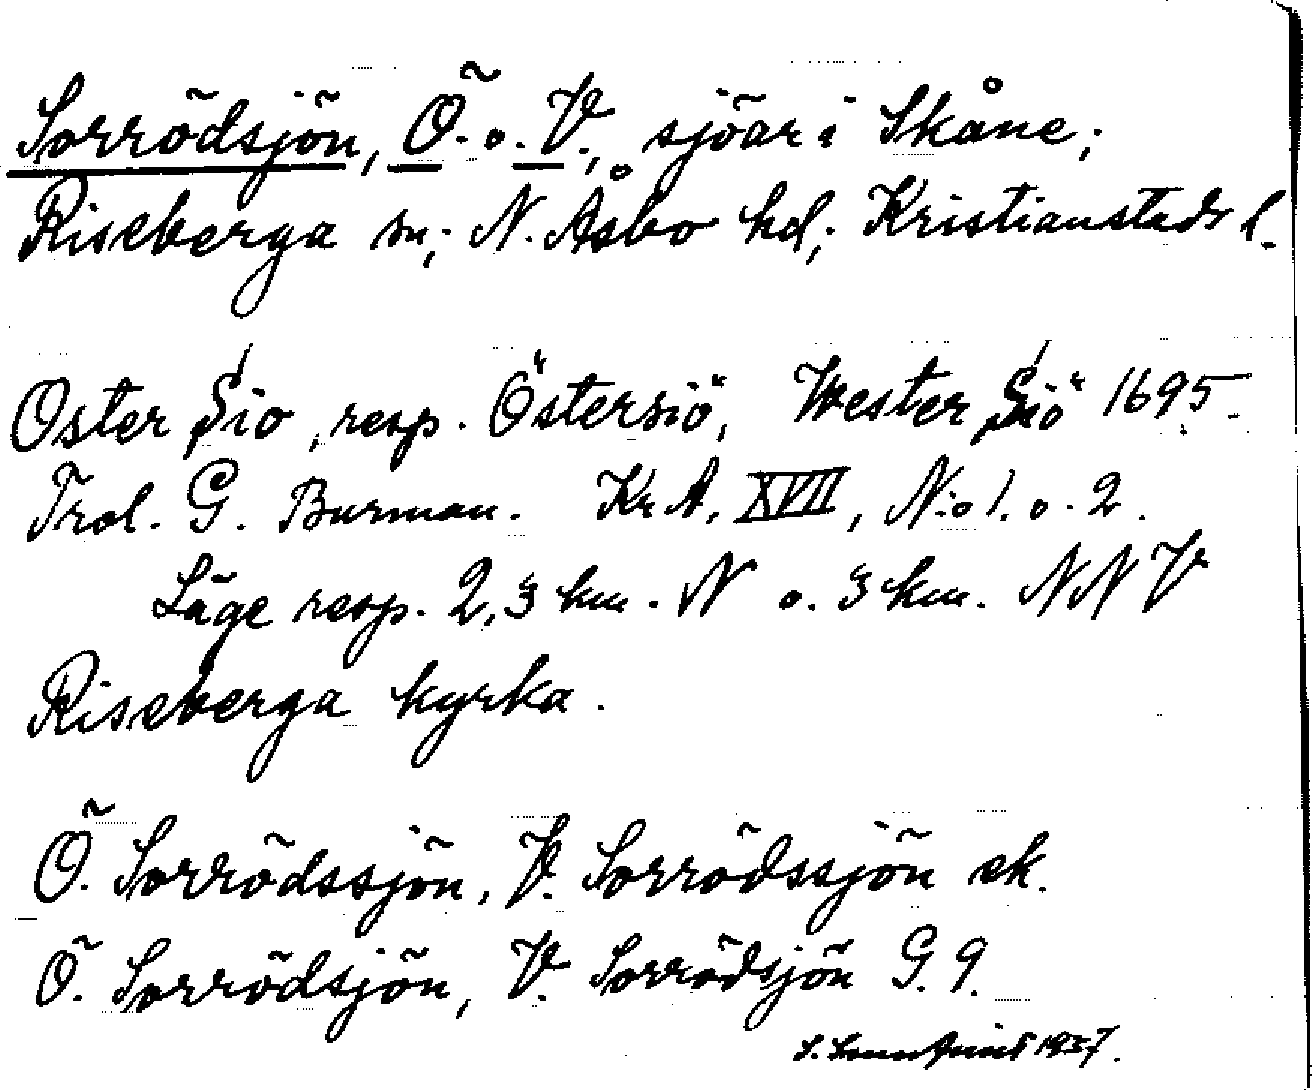 Sorrödsjön, Ö. o. V., sjöar i Skåne;
Riseberga sn; N. Åsbo hd; Kristianstads l.
Oster Sio, resp. Östersiö, Wester Siö 1695.
Trol. G. Burman. Kr A, XVII, N:o 1. o. 2.
Läge resp. 2,3 km. N o. 3 km. NNV
Riseberga kyrka.
Ö. Sorrödssjön, V. Sorrödssjön ek.
Ö. Sorrödsjön, V. Sorrödsjön G. 9.
S. 1937.